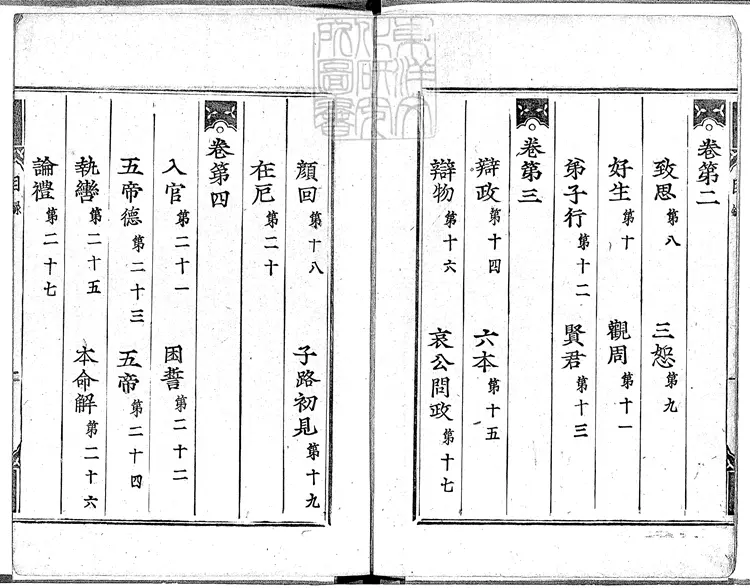 卷第二
致思第八　三恕第九
好生第十　觀周第十一
弟子行第十二　賢君第十三
卷第三
辯政第十四　六本第十五
辯物第十六　哀公問政第十七
目錄
顏回第十八　子路初見第十九
在厄第二十
卷第四
入官第二十一　困誓第二十二
五帝德第二十三　五帝第二十四
執轡第二十五　本命解第二十六
論禮第二十七
目錄